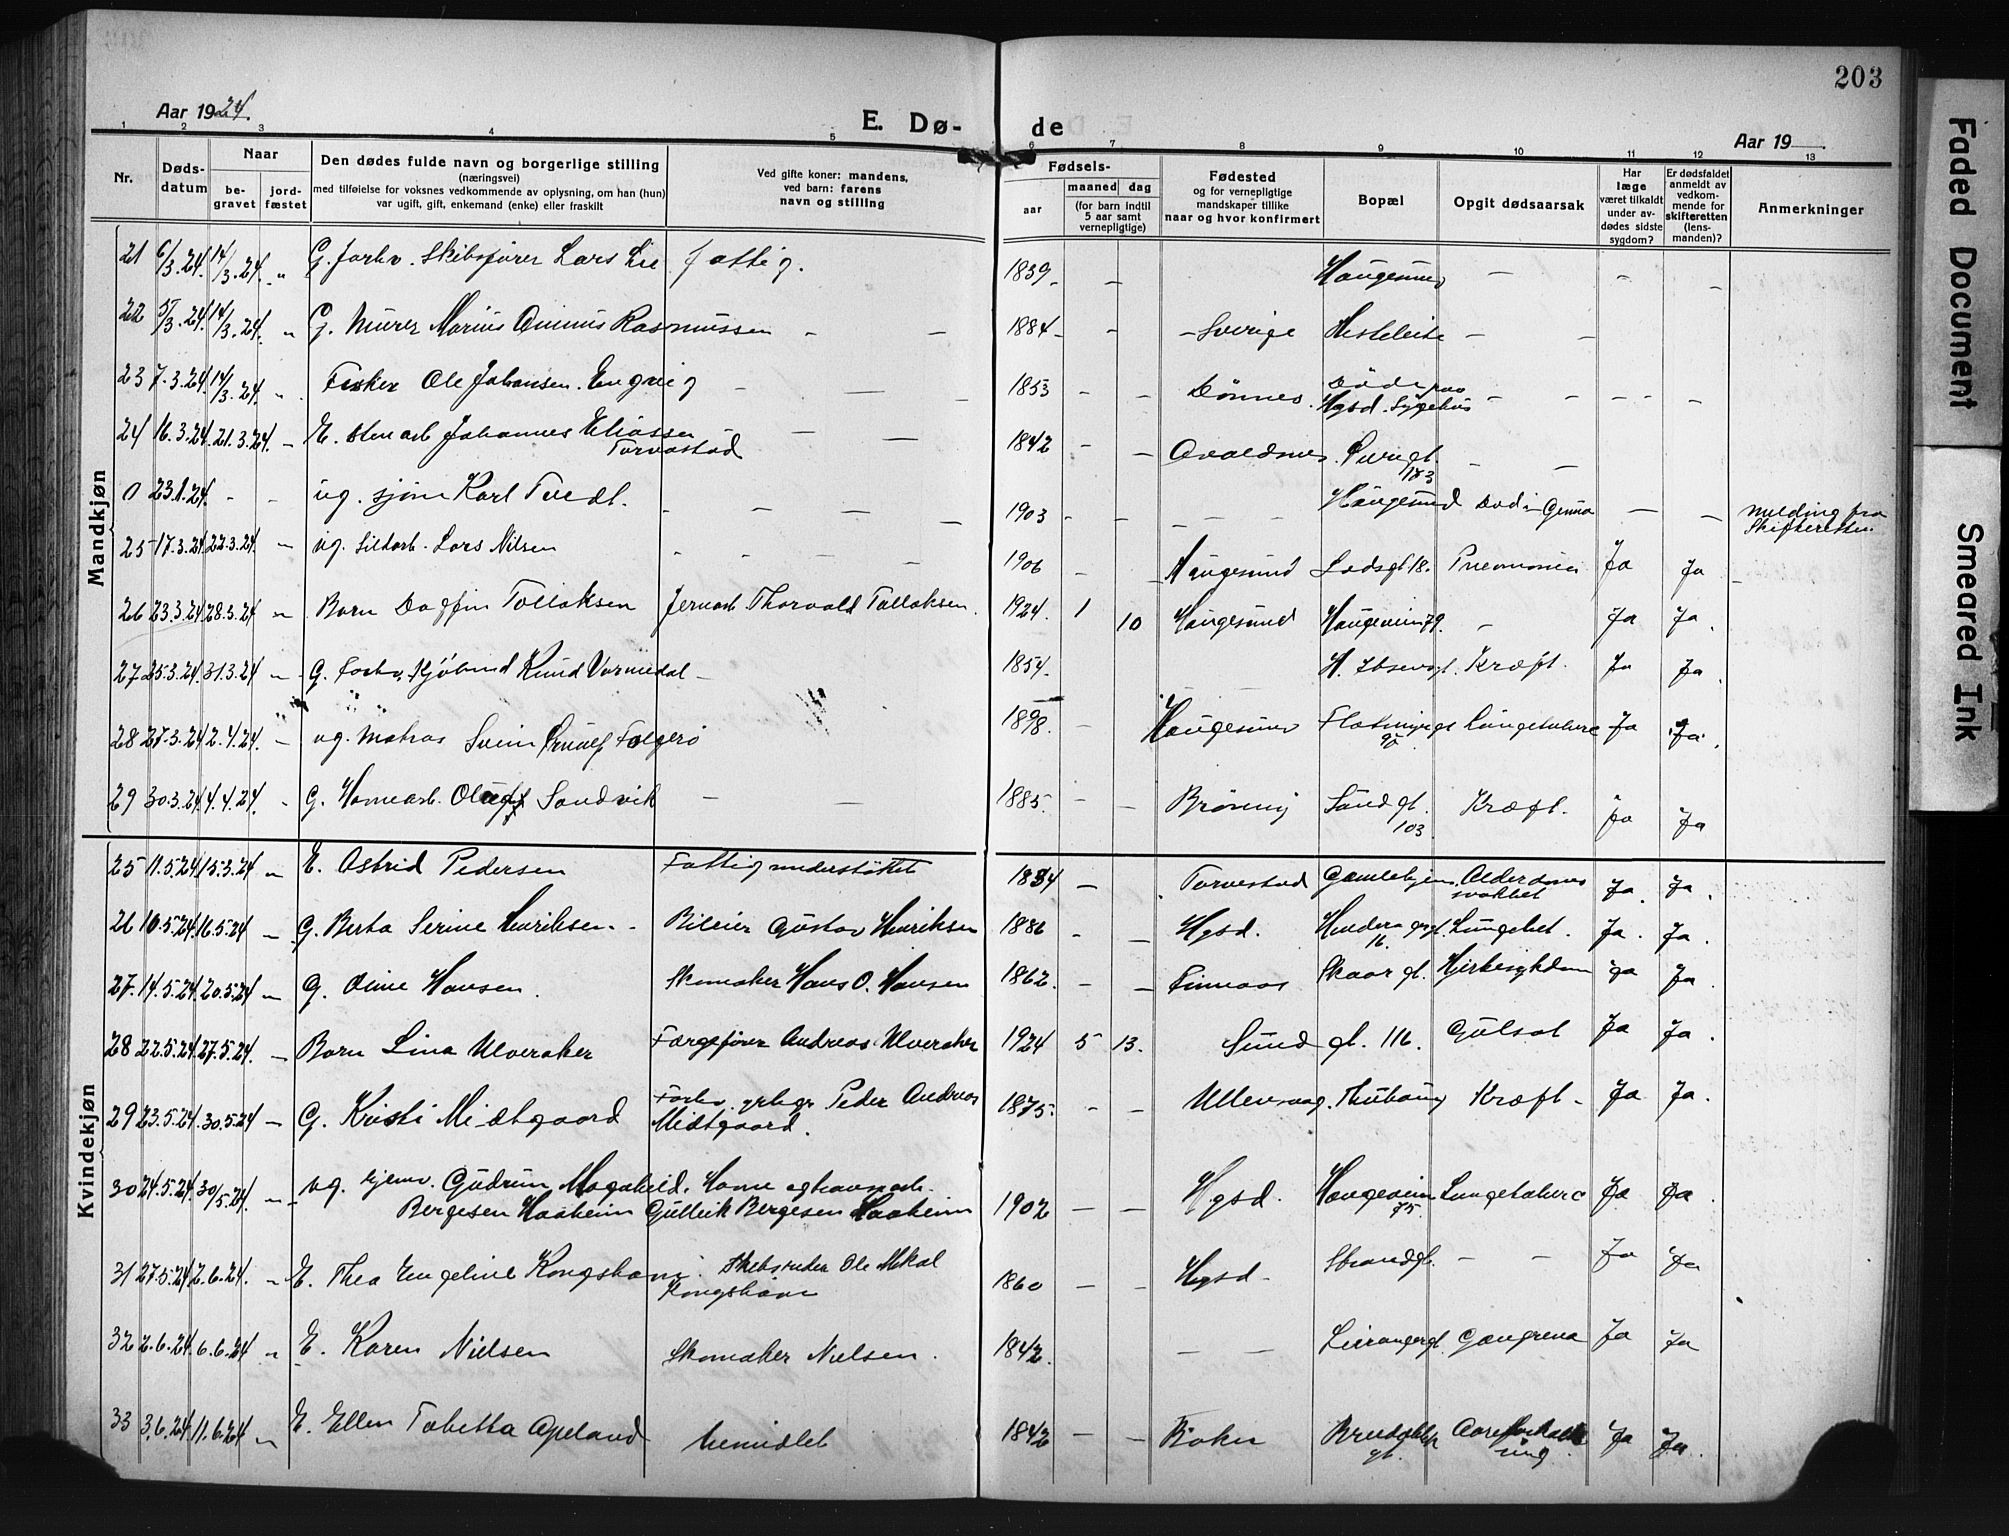 203
Aar 1924.
E. Dø-
de
Aar 19
1 2 3 4 5 6 7 8 9 10 11 12 13
Nr.
Døds-
datum
Naar
be-
gravet
jord-
fæstet
Den dødes fulde navn og borgerlige stilling
(næringsvei)
med tilføielse for voksnes vedkommende av oplysning, om han (hun)
var ugift, gift, enkemand (enke) eller fraskilt
Ved gifte koner: mandens,
ved barn: farens
navn og stilling
Fødsels-
aar
maaned
dag
(for barn indtil
5 aar samt
vernepligtige)
Fødested
og for vernepligtige
mandskaper tillike
naar og hvor konfirmert
Bopæl
Opgit dødsaarsak
Har
læge
været tilkaldt
under av-
dødes sidste
sygdom?
Er dødsfaldet
anmeldt av
vedkom-
mende for
skifteretten
(lens-
manden)?
Anmerkninger
Mandkjøn
21 6/3.24. 14/3.24. „ G. forhv. Skibsfører Lars Lie fattig. 1839 - - Haugesund - - -
22 5/3.24. 14/3.24. „ G. Murer Marius Rasmussen - - 1884 - - - Sverige - -
23 7.3.24. 14/3.24. „ Fisker Ole Johansen Engvig - - - 1853 - - Dønnes. Døde paa
Hgsd. Sygehus - - - - -
24 16.3.24. 21.3.24. „ E. Johannes Eliassen
Torvastad - - 1842 - - Avaldsnes
183 - -
0 23.1.24. - - ug. sjøm Karl Tvedt. - - - - 1903 - - - - - Haugesund Død i Genua - - Melding fra
Skifteretten.
25 17.3.24 22.3.24. „ ug. Sildarb. Lars Nilsen - - - 1906 - - Haugesund Lodsgt. 18. Pneumonia Ja Ja -
26 23.3.24 28.3.24 „ Barn Dagfin Tollaksen Jernarb. Thorvald Tollaksen. 1924. 1 10 Haugesund Haugeveien 79. - Ja Ja.
27 25.3.24. 31.3.24 „ G. forhv. Kjøbmd Knud Vormedal - 1854. H. Ibsensgt. Kræft. Ja Ja.
28 27.3.24 2.4.24. „ ug. Matros Svein Folgerø 1898. - Haugesund
95 Lungetuberc Ja Ja.
29 30.3.24 4.4.24. „ G. Havnearb. Oluf Sandvik - - 1885. - - Brønnøy Sundgt.
103. Kræft. Ja Ja
Kvindekjøn
25 11.5.24 15.3.24 „ E. Astrid Pedersen Fattigunderstøttet 1834 - Torvestad Gamlehjem Alderdoms
svakhet Ja. Ja.
26 10.5.24. 16.5.24 „ G. Berta Serine Henriksen. - Bileier Gustav Henriksen 1886 - - Hgsd.
16. Lungebet. Ja. Ja.
27. 14.5.24 20.5.24 „ G. Oline Hansen. Skomaker Hans O. Hansen 1862. - - Finnaas Skaargt. Hjertesykdom Ja Ja.
28 22.5.24. 27.5.24. „ Barn Lina Ulveraker Færgefører Andreas Ulveraker 1924 5 13. Sundgt. 116. Gulsot Ja Ja.
29 23.5.24. 30.5.24 „ G. Kristi Midtgaard Forhv. Peder Andreas
Midtgaard. 1875. - - Ullensvang. Kræft - Ja Ja.
30 24.5.24. 30/5.24 „ ug. hjemv. Gudrun Magnhild. Havne og havnearb.
Bergesen Haaheim Gulleik Bergesen Haaheim 1902 - - Hgsd. Haugeveien
75. Lungetuberc Ja Ja.
31 27.5.24 2.6.24. „ E. Thea Engeline Kongshavn. Skibsreder Ole Mikal
Kongshavn 1860 - - Hgsd - Strandgt. - - Ja Ja
32 2.6.24. 6.6.24 „ E. Karen Nielsen Skomaker Nielsen. 1842. - - Gangrena Ja Ja
33 3.6.24 11.6.24 „ E. Ellen Tabetta Apeland bemidlet 1842 - - Boken Breidablik
gt. Aareforkalk
ning Ja Ja.
Faded Document
Smeared Ink